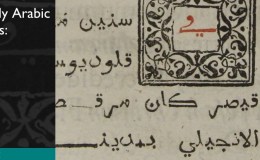 ly Arabic
s:
سنين مر
قلوديوس
قيصر كان مرقس
الانجيلي بمدين